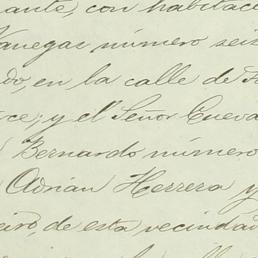 ante, con habitac
Vanegas número seis
do, en la calle de
ce; y el Señor Cueva
Bernardo número
Adrián Herrera y
eiro, de esta vecindad